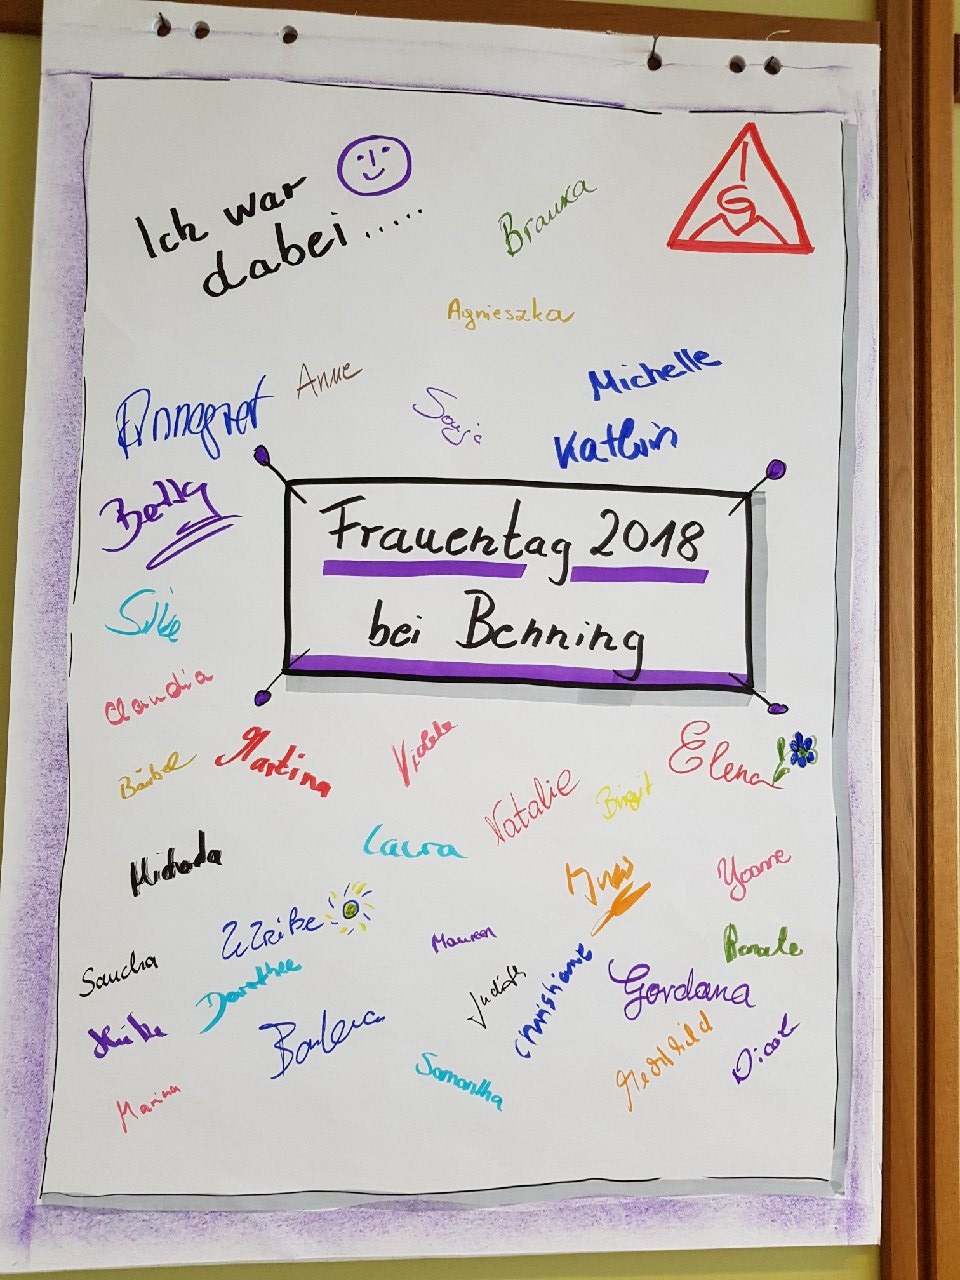 Ich war
dabei.....
IG
Branka
Agnieszka
Michelle
Anne
Annegret
Sonja
Kathrin
Betty
Frauentag 2018
bei Benning
Silke
Claudia
Violeta
Elena
Martina
Bärbel
Natalie
Birgit
Laura
Michaela
Yvonne
Ulrike
Maureen
Renate
Sascha
Dorothee
Judith
Christiane
Gordana
Barbara
Heike
Mechthild
Nicole
Samantha
Marina